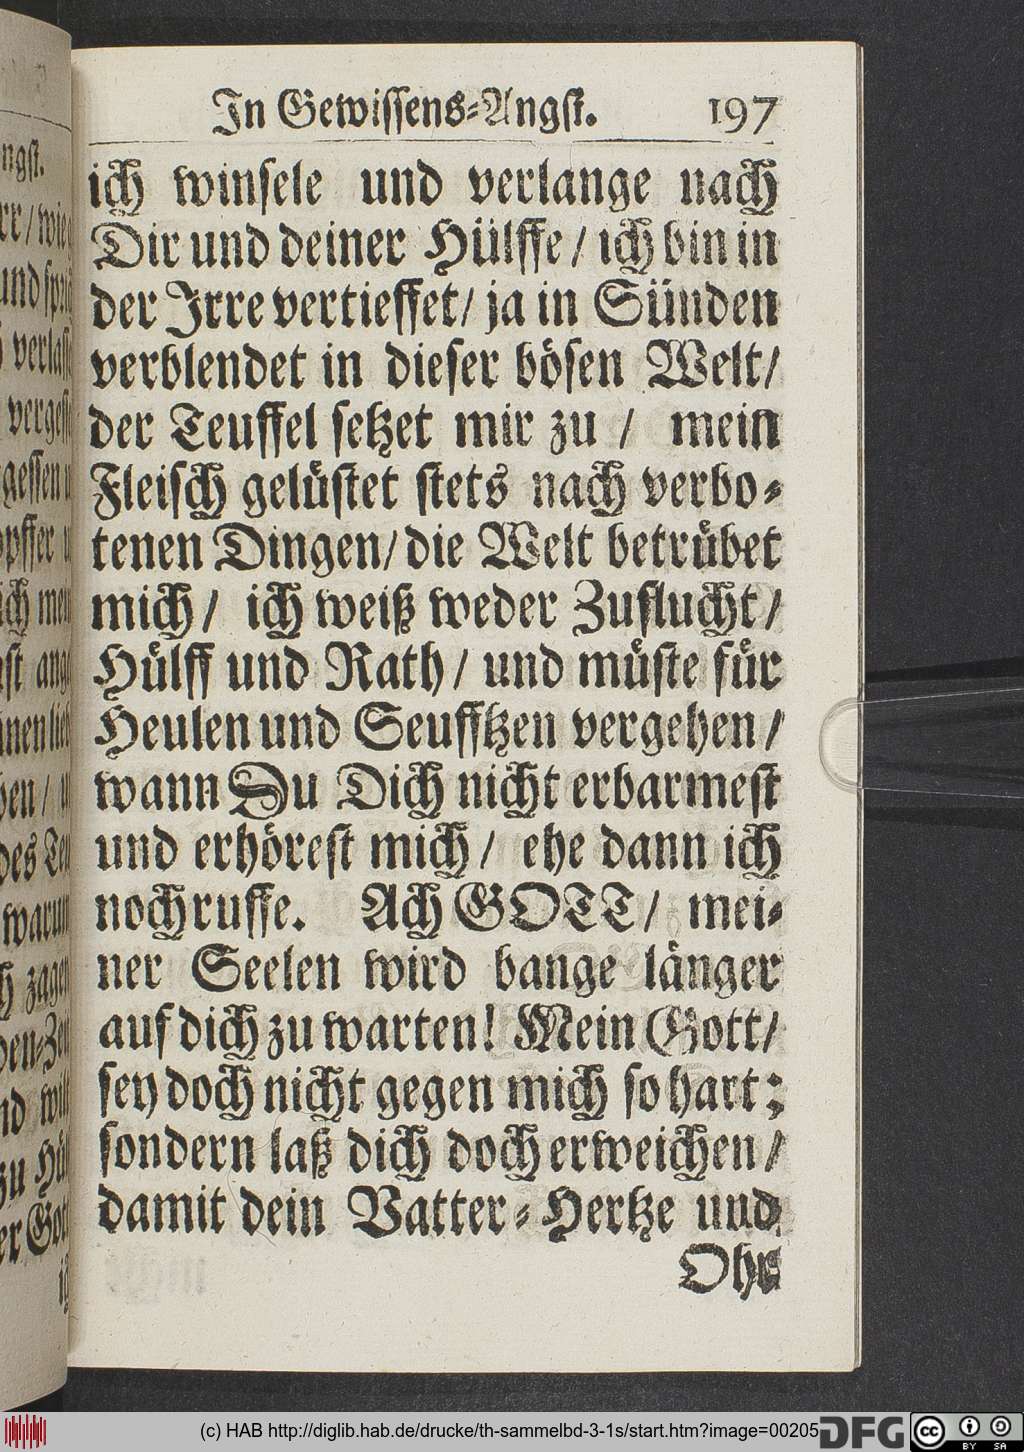 In Gewissens-Angst. 197
ich winsele und verlange nach
Dir und deiner Hülffe / ich bin in
der Irre vertieffet / ja in Sünden
verblendet in dieser bösen Welt /
der Teuffel setzet mir zu / mein
Fleisch gelüstet stets nach verbo-
tenen Dingen / die Welt betrübet
mich / ich weiß weder Zuflucht /
Hülff und Rath / und müste für
Heulen und Seufftzen vergehen /
wann Du Dich nicht erbarmest
und erhörest mich / ehe dann ich
noch ruffe. Ach GOTT / mei-
ner Seelen wird bange länger
auf dich zu warten! Mein Gott /
sey doch nicht gegen mich so hart;
sondern laß dich doch erweichen /
damit dein Vatter-Hertze und
Ohr
(c) HAB http://diglib.hab.de/drucke/th-sammelbd-3-1s/start.htm?image=00205
DFG
cc BY SA